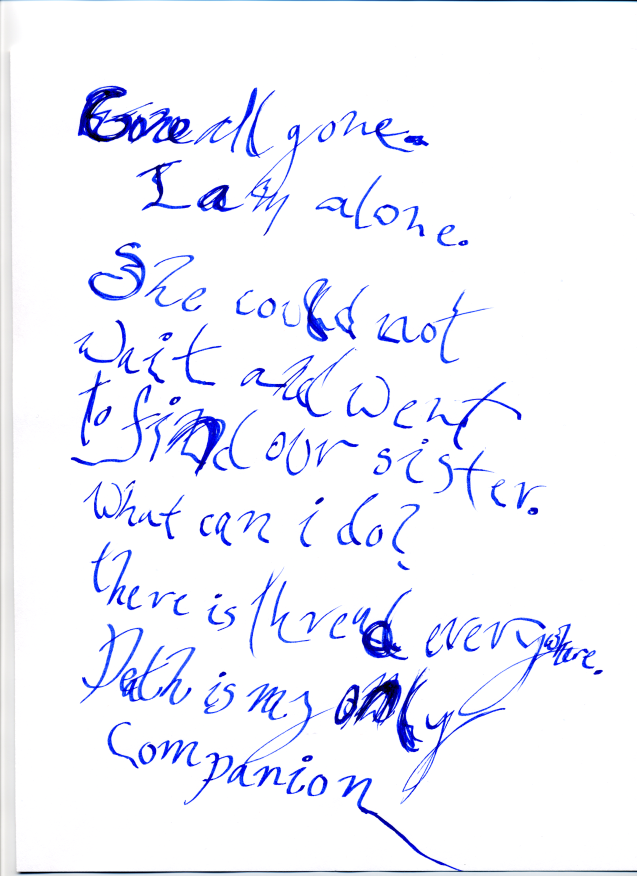 Gone all gone.
I am alone.
She could not
wait and went
to find our sister.
What can i do?
there is thread everywhere.
Death is my only
companion